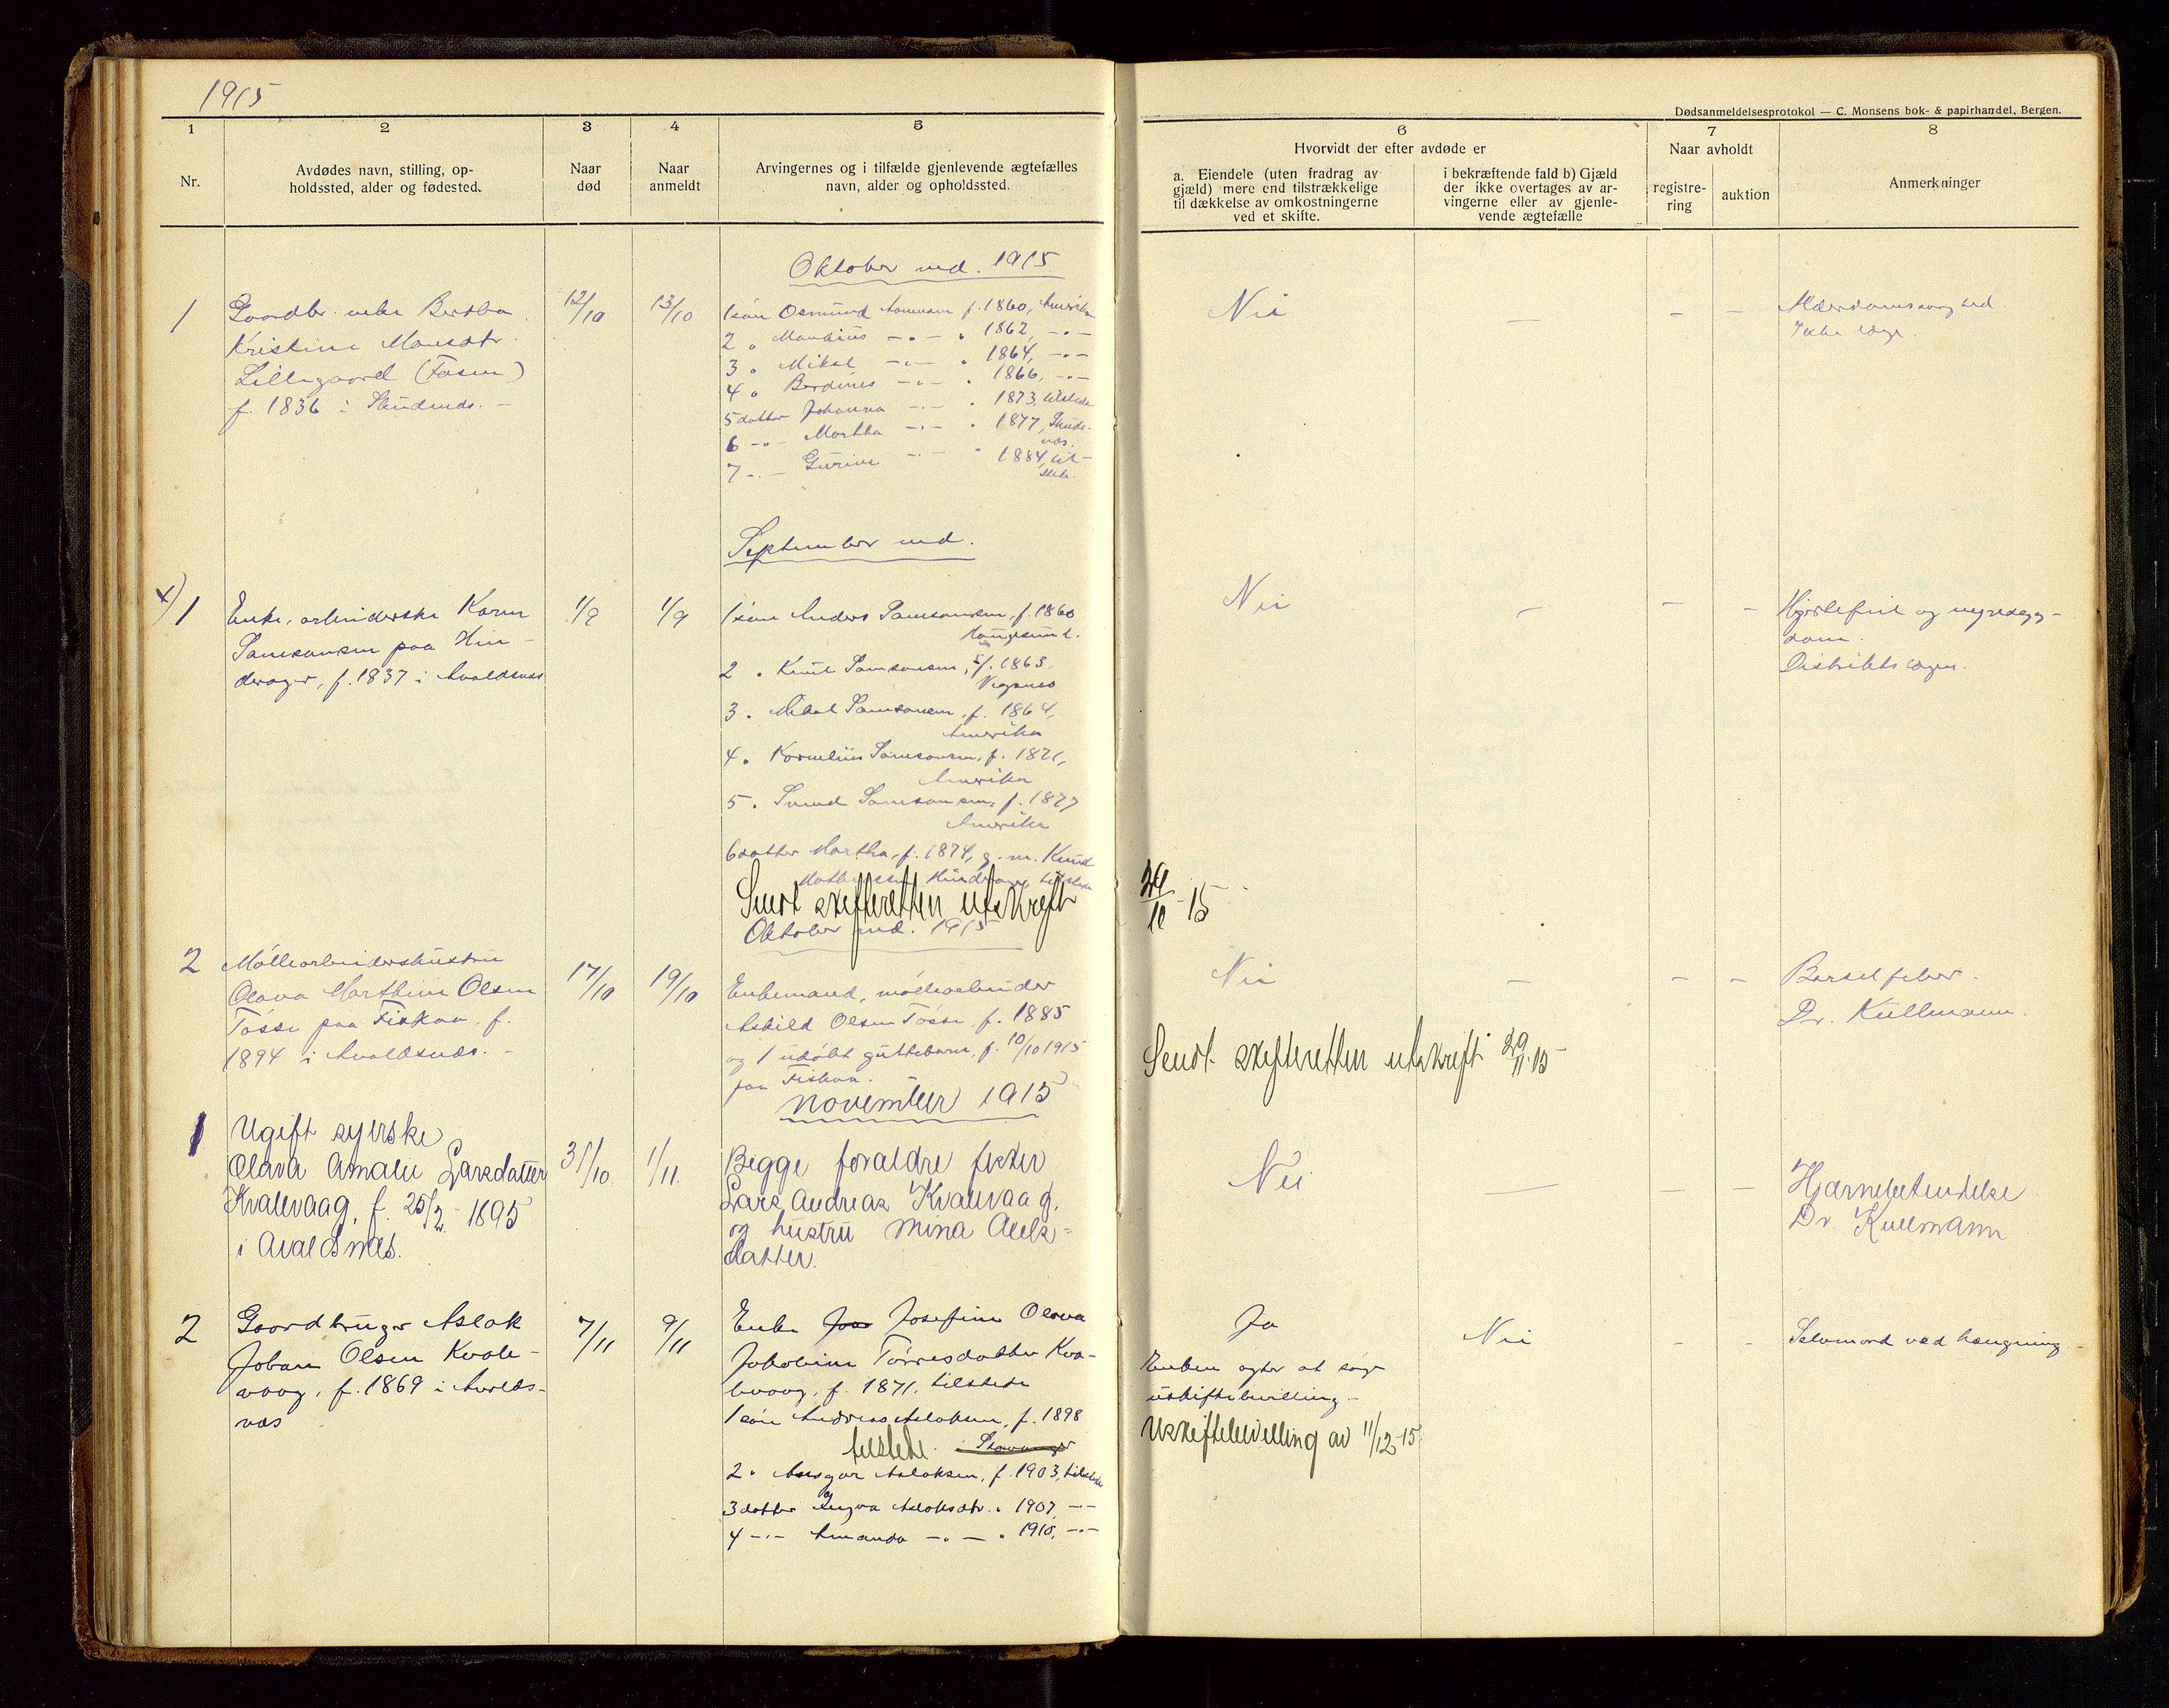 1915
Dødsanmeldelsesprotokol — C. Monsens bok- & papirhandel, Bergen.
1 2 3 4 5 6 7 8
Nr.
Avdødes navn, stilling, op-
holdssted, alder og fødested.
Naar
død
Naar
anmeldt
Arvingernes og i tilfælde gjenlevende ægtefælles
navn, alder og opholdssted.
Hvorvidt der efter avdøde er
a. Eiendele (uten fradrag av
gjæld) mere end tilstrækkelige
til dækkelse av omkostningerne
ved et skifte.
i bekræftende fald b) Gjæld
der ikke overtages av ar-
vingerne eller av gjenle-
vende ægtefælle
Naar avholdt
registre-
ring
auktion
Anmerkninger
Oktober md. 1915
1
Gaardbr. enke Bertha
Kristine Monsdtr.
Lillegaard (Fosen)
f. 1836 i Skudnæs. -
12/10
13/10
1 søn Osmund f. 1860, Amerika
2 " — " — " 1862, — " —
3 " Mikal — " — " 1864, — " —
4 " Berdines — " — " 1866, — " —
5 datter Johanna — " — " 1873, tilstede
6 — " — Martha — " — " 1877, Skude-
næs.
7 — " — Gurine — " — " 1884, til-
stede.
Nei
—
-
-
Alderdomssvaghed.
Ikke læge.
September md.
x) 1
Enke, arbeiderske Karen
Samsonsen paa Hin-
derager, f. 1837 i Avaldsnæs
1/9
1/9
1 søn Anders Samsonsen, f. 1860
Haugesund.
2 " Knut Samsonsen, f. 1863.
3 " Mikal Samsonsen, f. 1864,
Amerika
4 " Kornelius Samsonsen, f. 1871,
Amerika
5 " Samsonsen, f. 1877
Amerika
6 datter Martha, f. 1874, g. m. Knud
Nei
-
-
-
Hjertefeil og nyresyg-
dom.
Distriktslægen.
Sendt skifteretten utskrift 29/10 - 15
Oktober md. 1915
2
Møllearbeidershustru
Olava Marthine Olsen
Tøsse paa Fiskaa, f.
1894 i Avaldsnæs. -
17/10
19/10
Enkemand, møllearbeider
Askild Olsen Tøsse, f. 1885
og 1 udøbt guttebarn, f. 10/10 1915
paa Fiskaa.
Nei
-
-
-
Barselfeber.
Dr. Kullmann.
Sendt skifteretten utskrift 29/11-15
november 1915
1
Ugift syerske
Olava Amalie Larsdatter
Kvalevaag, f. 25/2 - 1895
i Avaldsnæs.
31/10.
1/11.
Begge foraldre fisker
Lars Andreas Kvalevaag.
og hustru Mina Aleks=
datter.
Nei
—
—
—
Hjernebetendelse
Dr. Kullmann
2
Gaardbruger Aslak
Johan Olsen Kvale-
vaag, f. 1869 i Avalds-
næs
7/11
9/11
Enke Josefine Olava
Jakobine Tørresdatter Kva-
levaag, f. 1871, tilstede
1 søn Andreas Aslaksen, f. 1898
tilstede. Stavanger
2 " Ansgar Aslaksen, f. 1903, tilstede
3 datter Ingva Aslaksdtr. " 1907, — " —
4 — " — Amanda — " — " 1910, — " —
Ja
Enken agter at søge
uskiftebevilling -
Uskiftebevilling av 11/12-15.
Nei
-
-
Selvmord ved hængning.